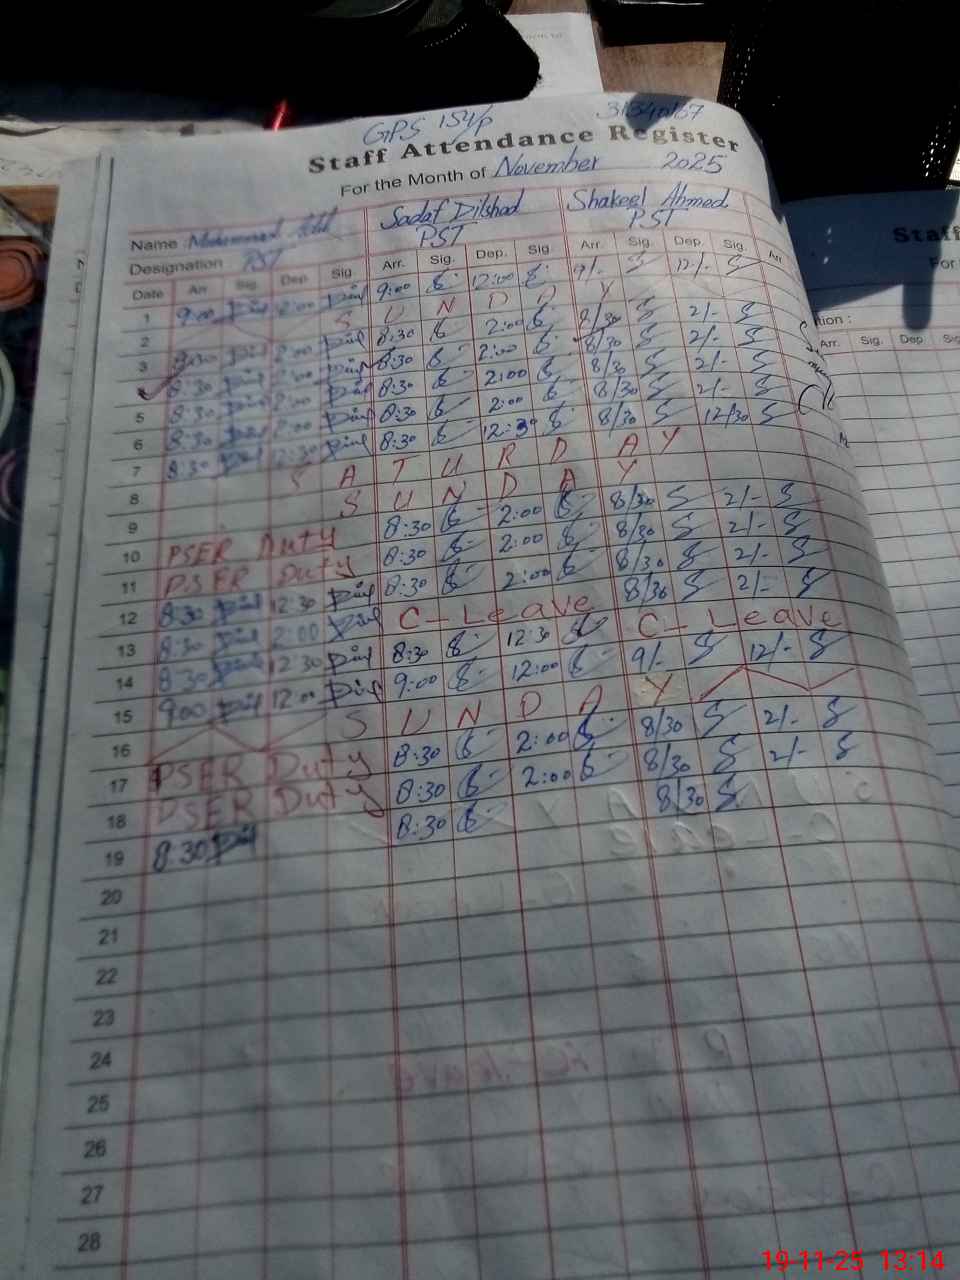 GPS 154/p 31340167
Staff Attendance Register
For the Month of November 2025
Name Muhammad Adil Sadaf Dilshad Shakeel Ahmed
Designation PST PST PST
Date Arr Sig. Dep Sig. Arr. Sig. Dep. Sig. Arr. Sig. Dep. Sig. Arr
1 9:00 12:00 9:00 12:00 9/- 12/-
2 S U N D A Y
3 8:30 2:00 8:30 2:00 8/30 2/-
8:30 2:00 8:30 2:00 8/30 2/-
5 8:30 2:00 8:30 2:00 8/30 2/-
6 8:30 2:00 8:30 2:00 8/30 2/-
7 8:30 12:30 8:30 12:30 8/30 12/30
8 S A T U R D A Y
9 S U N D A Y
10 PSER Duty 8:30 2:00 8/30 2/-
11 PSER Duty 8:30 2:00 8/30 2/-
12 8:30 12:30 8:30 2:00 8/30 2/-
13 8:30 2:00 C-Leave 8/30 2/-
14 8:30 12:30 8:30 12:30 C-Leave
15 9:00 12:00 9:00 12:00 9/- 12/-
16 S U N D A Y
17 PSER Duty 8:30 2:00 8/30 2/-
18 PSER Duty 8:30 2:00 8/30 2/-
19 8:30 8:30 8/30
20
21
22
23
24
25
26
27
28
Staff
For
tion :
Arr. Sig. Dep Sig
19-11-25 13:14